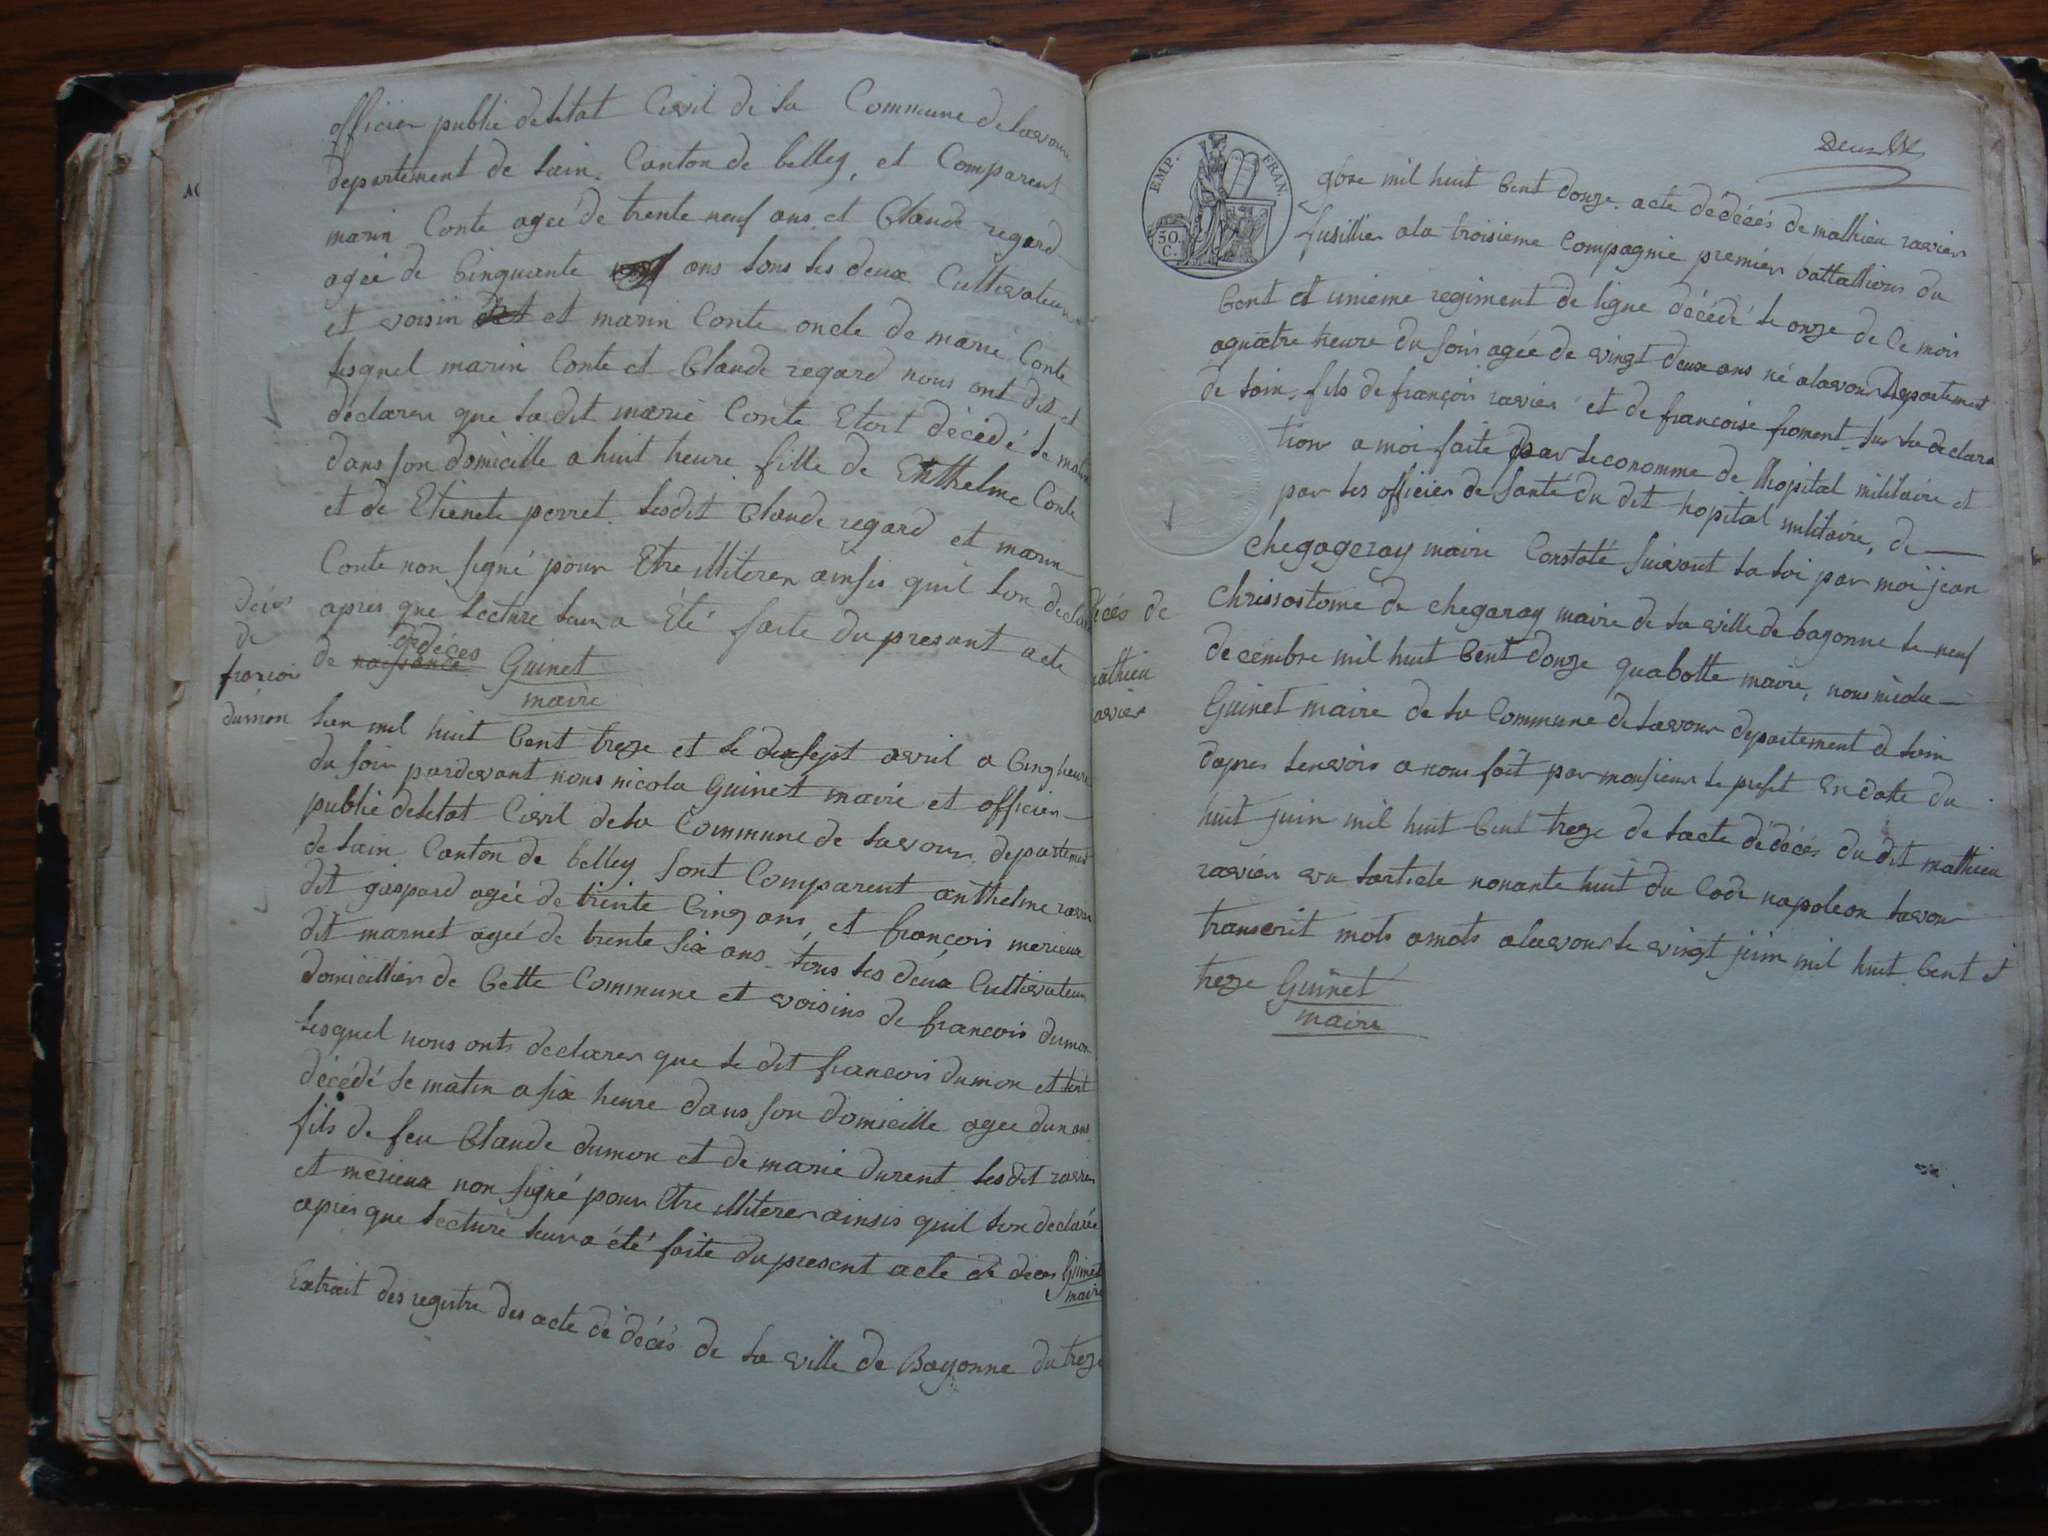 officier public deletat Civil de la Commune de lavour
departement de lain. Canton de belley, et Comparent
marin Conte agée de trente neuf ans et Claude regard
agée de Cinquante ans tous les deux Cultivateur
et voisin et marin Conte oncle de marie Conte
lesquel marin Conte et Claude regard nous ont dit et
declarer que la dit marie Conte Etoit décédé le matin
dans son domicille a huit heure fille de Enthelme Conte
et de Etienete perret. lesdit Claude regard et marin
Conte non signé pour Etre illiterer ainsis quil lon declaré
apres que lecture leur a Eté faite du presant acte
de naissance dedéces Guinet
maire
déces
de
francoi
dumon
lan mil huit Cent treze et le disept avril a Cinq heure
du soir pardevant nous nicola Guinet maire et officier
public deletat Civil dela Commune de lavour, departement
de lain Canton de belley sont Comparent anthelme ravier
dit gaspard agée de trinte Cinq ans, et francois merieux
dit marnet agée de trente six ans tous les deux Cultivateur
domicillier de Cette Commune et voisins de francois dumon
lesquel nous onts declarer que le dit francois dumon et toit
décédé le matin a six heure dans son domicille agee dun ans
fils de feu Claude dumon et de marie durent lesdit ravier
et merieux non signé pour Etre illiterer ainsis quil lon declarée
apres que lecture leur a été faite du present acte de déces Guinet
maire
Extrait des registre des acte de décés de la ville de Bayonne du treze
EMP. FRAN.
50.
C.
9bre mil huit Cent douze. acte de décés de mathieu ravier
fusillier ala troisieme Compagnie premier battallions du
Cent et unieme regiment de ligne décédé le onze de Ce mois
aquatre heure du soir agée de vingt deux ans né alavour Departement
de lain, fils de françois ravier et de francoise froment sur la declara
tion a moi faite par leconomme de lhopital militaire et
par les officier de santé du dit hopital militaire, de
chegageray maire Constaté suivant la loi par moi jean
décés de
mathieu
ravier
Chrissostome de chegaray maire de la ville de bayonne le neuf
decembre mil huit Cent douze quabotte maire, nous nicola
Guinet maire de la Commune de lavour departement de lain
dapres lenvois a nous fait par monsieur le prefet en date du
huit juin mil huit Cent treze de lacte dédécés du dit mathieu
ravier vu larticle nonante huit du Code napoleon lavour
transcrit mots amots alavour le vingt juin mil huit Cent et
treze Guinet
maire